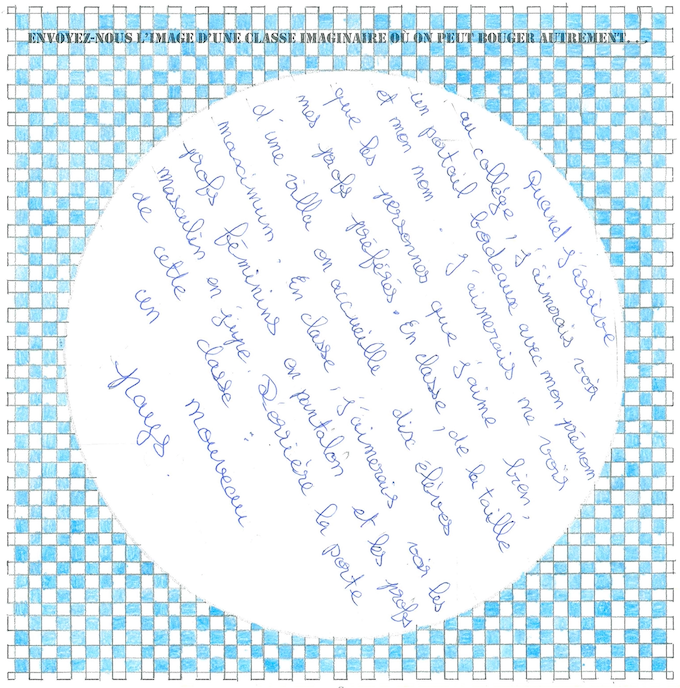 ENVOYEZ-NOUS L'IMAGE D'UNE CLASSE IMAGINAIRE OÙ ON PEUT BOUGER AUTREMENT...
Quand j'arrive
au collège, j'aimerais voir
un portail bordeaux avec mon prénom
et mon nom. j'aimerais ne voir
que les personnes que j'aime bien,
mes profs préférés. En classe, de la taille
d'une villa on accueille dix élèves
maximum. En classe, j'aimerais voir les
profs féminins en pantalon et les profs
masculin en jupe. Derrière la porte
de cette classe :
un nouveau
pays